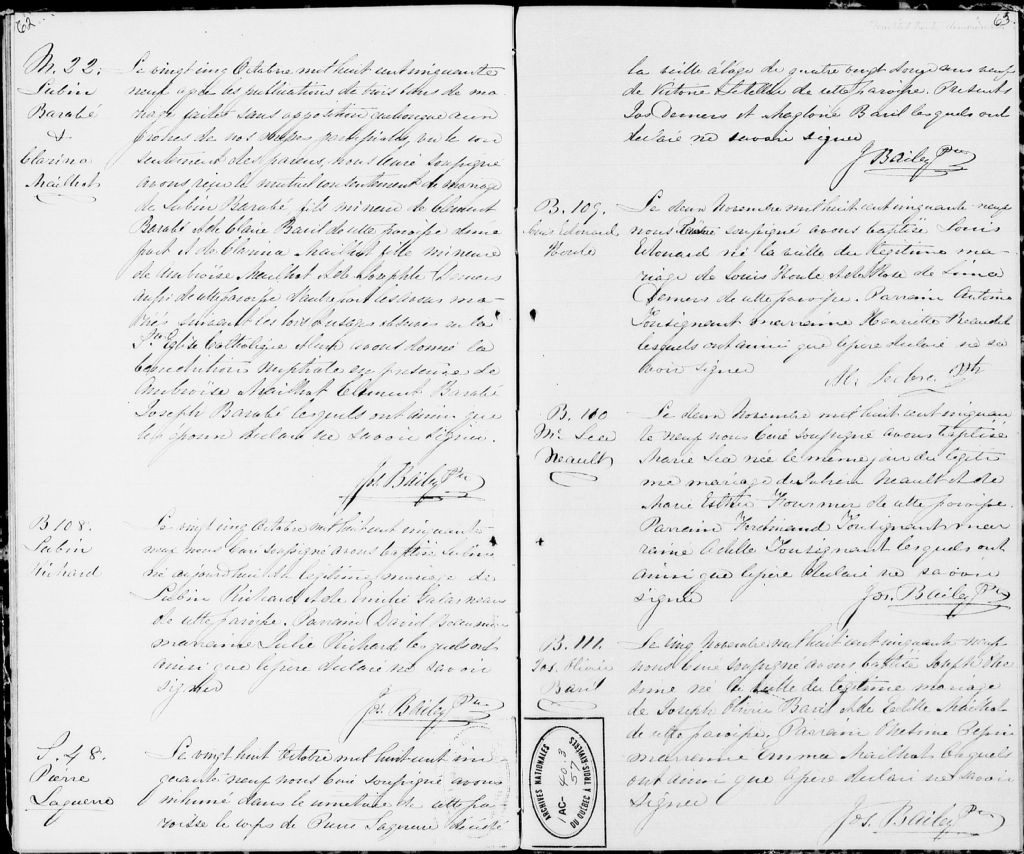 62.
M. 22.
Lubin
Barabé
&
Clarina
Mailhot
Le vingt cinq Octobre mil huit cent cinquante
neuf après les publications de trois bans de ma-
riage faites sans opposition quelconque aux
prônes de nos messes paroissiales, vu le con
sentement des parents, nous Curé soussigné
avons reçu le mutuel consentement de mariage
de Lubin Barabé fils mineur de Clément
Barabé et de Claire Baril de cette paroisse d'une
part et de Clarina Mailhot fille mineure
de Ambroise Mailhot et de Josephte
aussi de cette paroisse d'autre part les avons ma-
riés suivant les lois et usages observés en la
Ste Eglise Catholique et leur avons donné la
bénédiction nuptiale en présence de
Ambroise Mailhot Clément Barabé
Joseph Barabé lesquels ont ainsi que
les époux déclaré ne savoir signer.
Jos. Bailey Ptre
B 108.
Lubin
Richard
Le vingt cinq Octobre mil huit cent cinquante
neuf nous Curé soussigné avons baptisé Lubin
né aujourd'hui du légitime mariage de
Lubin Richard et de Emilie Galarneau
de cette paroisse. Parrain David
marraine Julie Richard lesquels ont
ainsi que le père déclaré ne savoir
signer
Jos. Bailey Ptre
S. 48.
Pierre
Laguerre
Le vingt huit Octobre mil huit cent cin
quante neuf nous Curé soussigné avons
inhumé dans le cimetière de cette pa
roisse le corps de Pierre Laguerre décédé
63.
la veille âgé de quatre vingt douze ans veuf
de Victoire Letellier de cette paroisse. Présents
Jos Demers et Magloire Baril lesquels ont
déclaré ne savoir signer
J Bailey Ptre
B. 109.
Louis Edouard
Houle
Le deux Novembre mil huit cent cinquante neuf
nous Prêtre soussigné avons baptisé Louis
Edouard né la veille du légitime ma-
riage de Louis Houle et de Lina
Demers de cette paroisse. Parrain Antoine
Tousignant marraine Henriette Beaudet
lesquels ont ainsi que le père déclaré ne sa
voir signer
Leclerc Ptre
B. 110
Mie Lea
Neault
Le deux Novembre mil huit cent cinquan
te neuf nous Curé soussigné avons baptisé
Marie Lea née le même jour du légiti
me mariage de Julien Neault et de
Marie Esther Fournier de cette paroisse.
Parrain Ferdinand Tousignant mar
raine Odille Tousignant lesquels ont
ainsi que le père déclaré ne savoir
signer
Jos. Bailey Ptre
B. 111.
Jos. Olivier
Baril
Le cinq Novembre mil huit cent cinquante neuf
nous Curé soussigné avons baptisé Joseph
né la veille du légitime mariage
de Joseph Olivier Baril et de Odille Mailhot
de cette paroisse, Parrain Onésime Pepin
marraine Emma Mailhot lesquels
ont ainsi que le père déclaré ne savoir
signer
Jos. Bailey Ptre
ARCHIVES NATIONALES
DU QUÉBEC À TROIS-RIVIÈRES